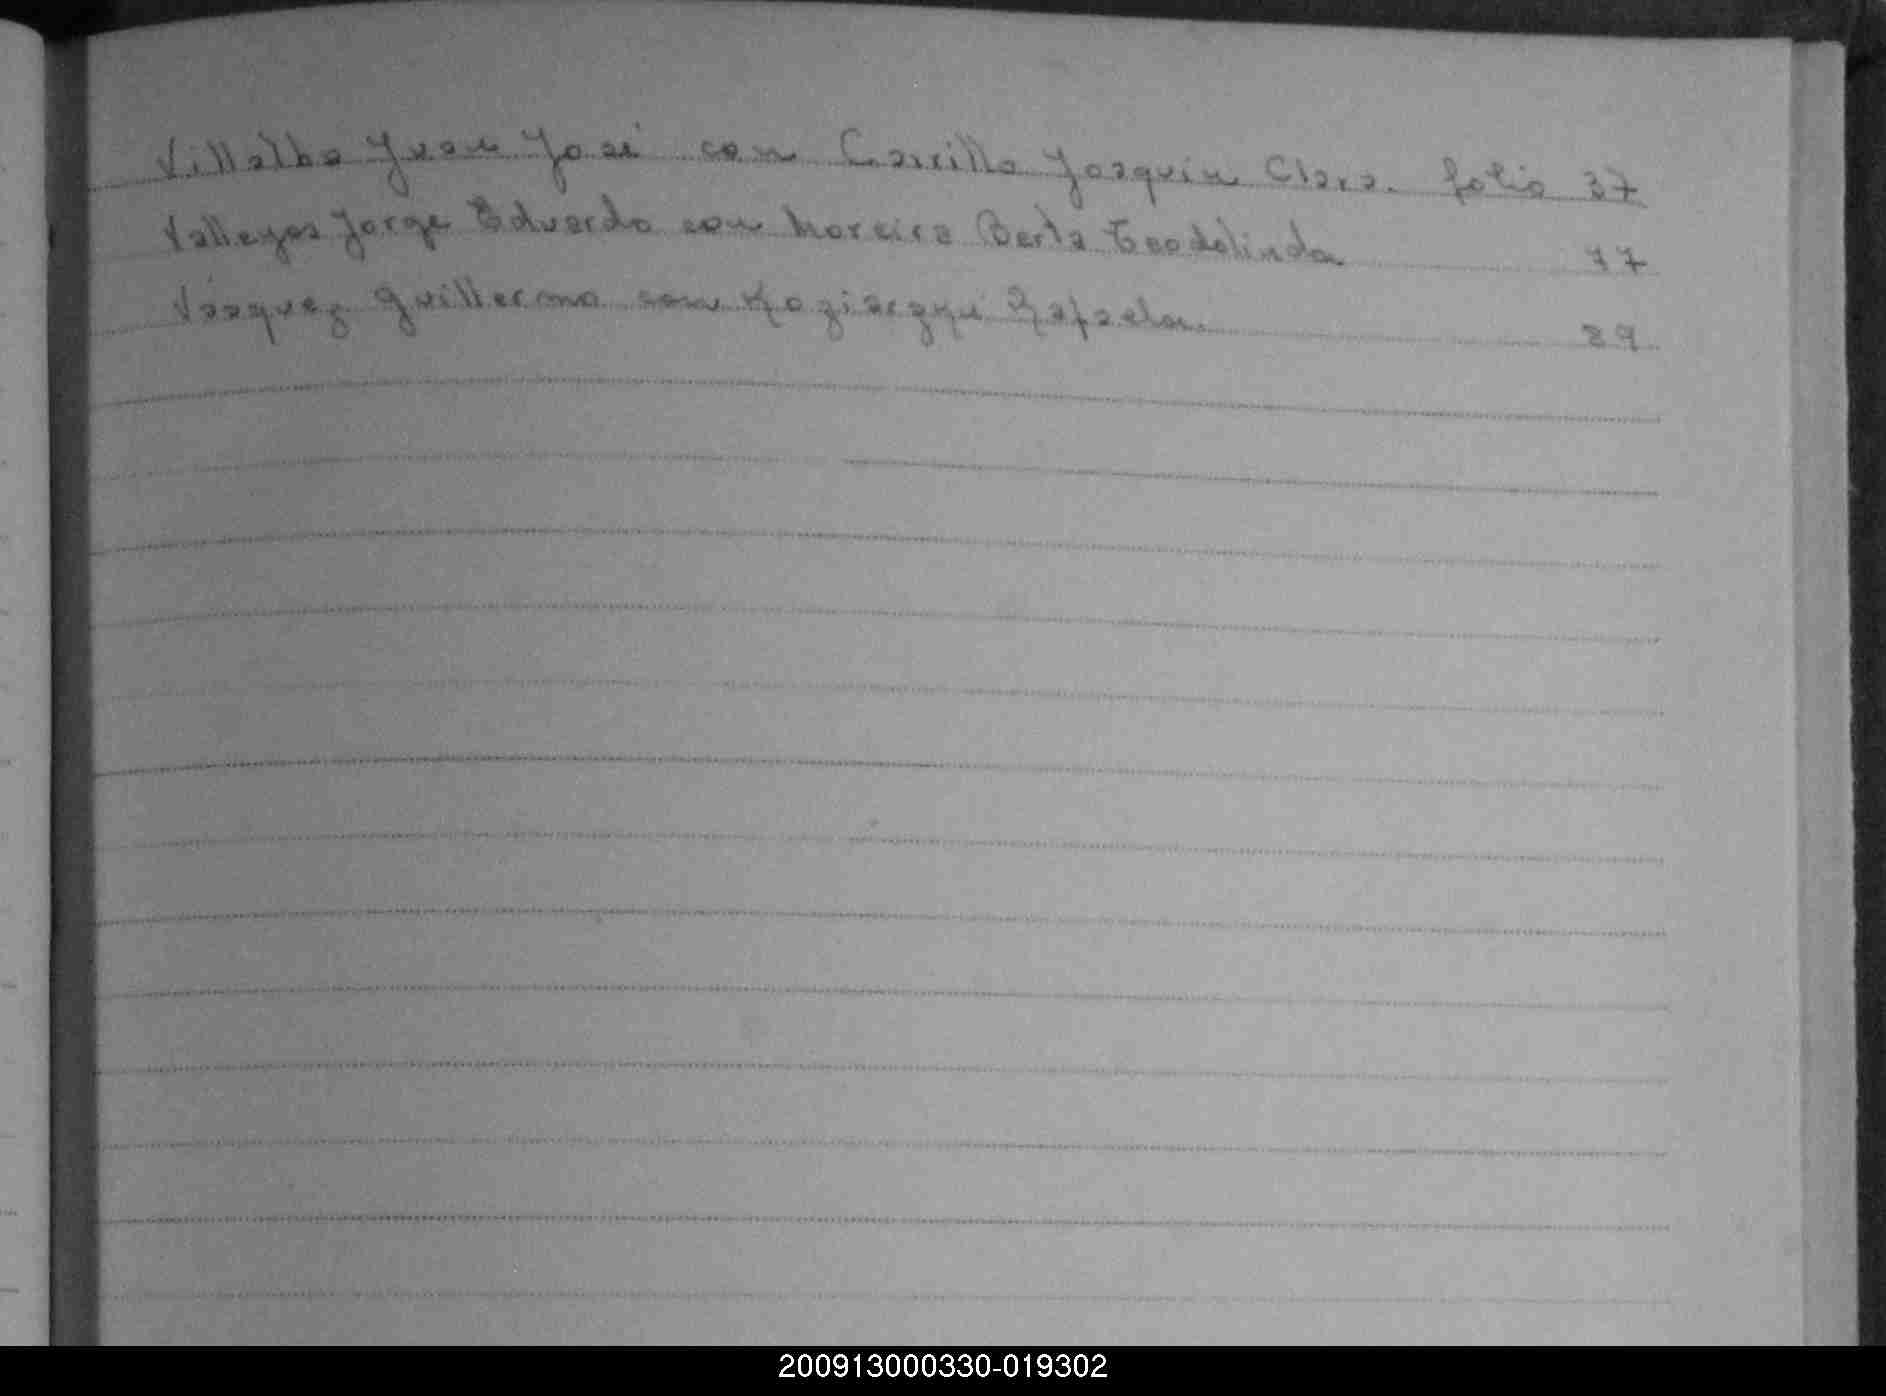 Villalba Juan José con Carrillo Joaquin Clara. folio 37
Vallejos Jorge Eduardo con Moreira Berta Teodolinda 77
Vasquez Guillermo con Rafaela. 89
200913000330-019302